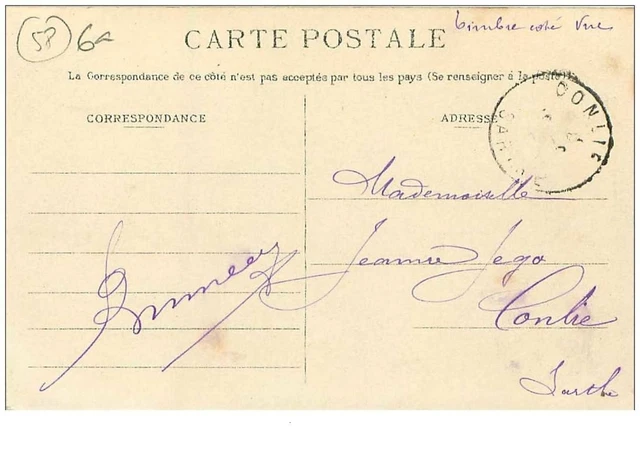 58 6a
Timbre coté Vue
CARTE POSTALE
La Correspondance de ce côté n'est pas acceptée par tous les pays (Se renseigner à la poste)
CORRESPONDANCE
ADRESSE
CONLIE
SARTHE
Mademoiselle
Jeanne Jego
Conlie
Sarthe